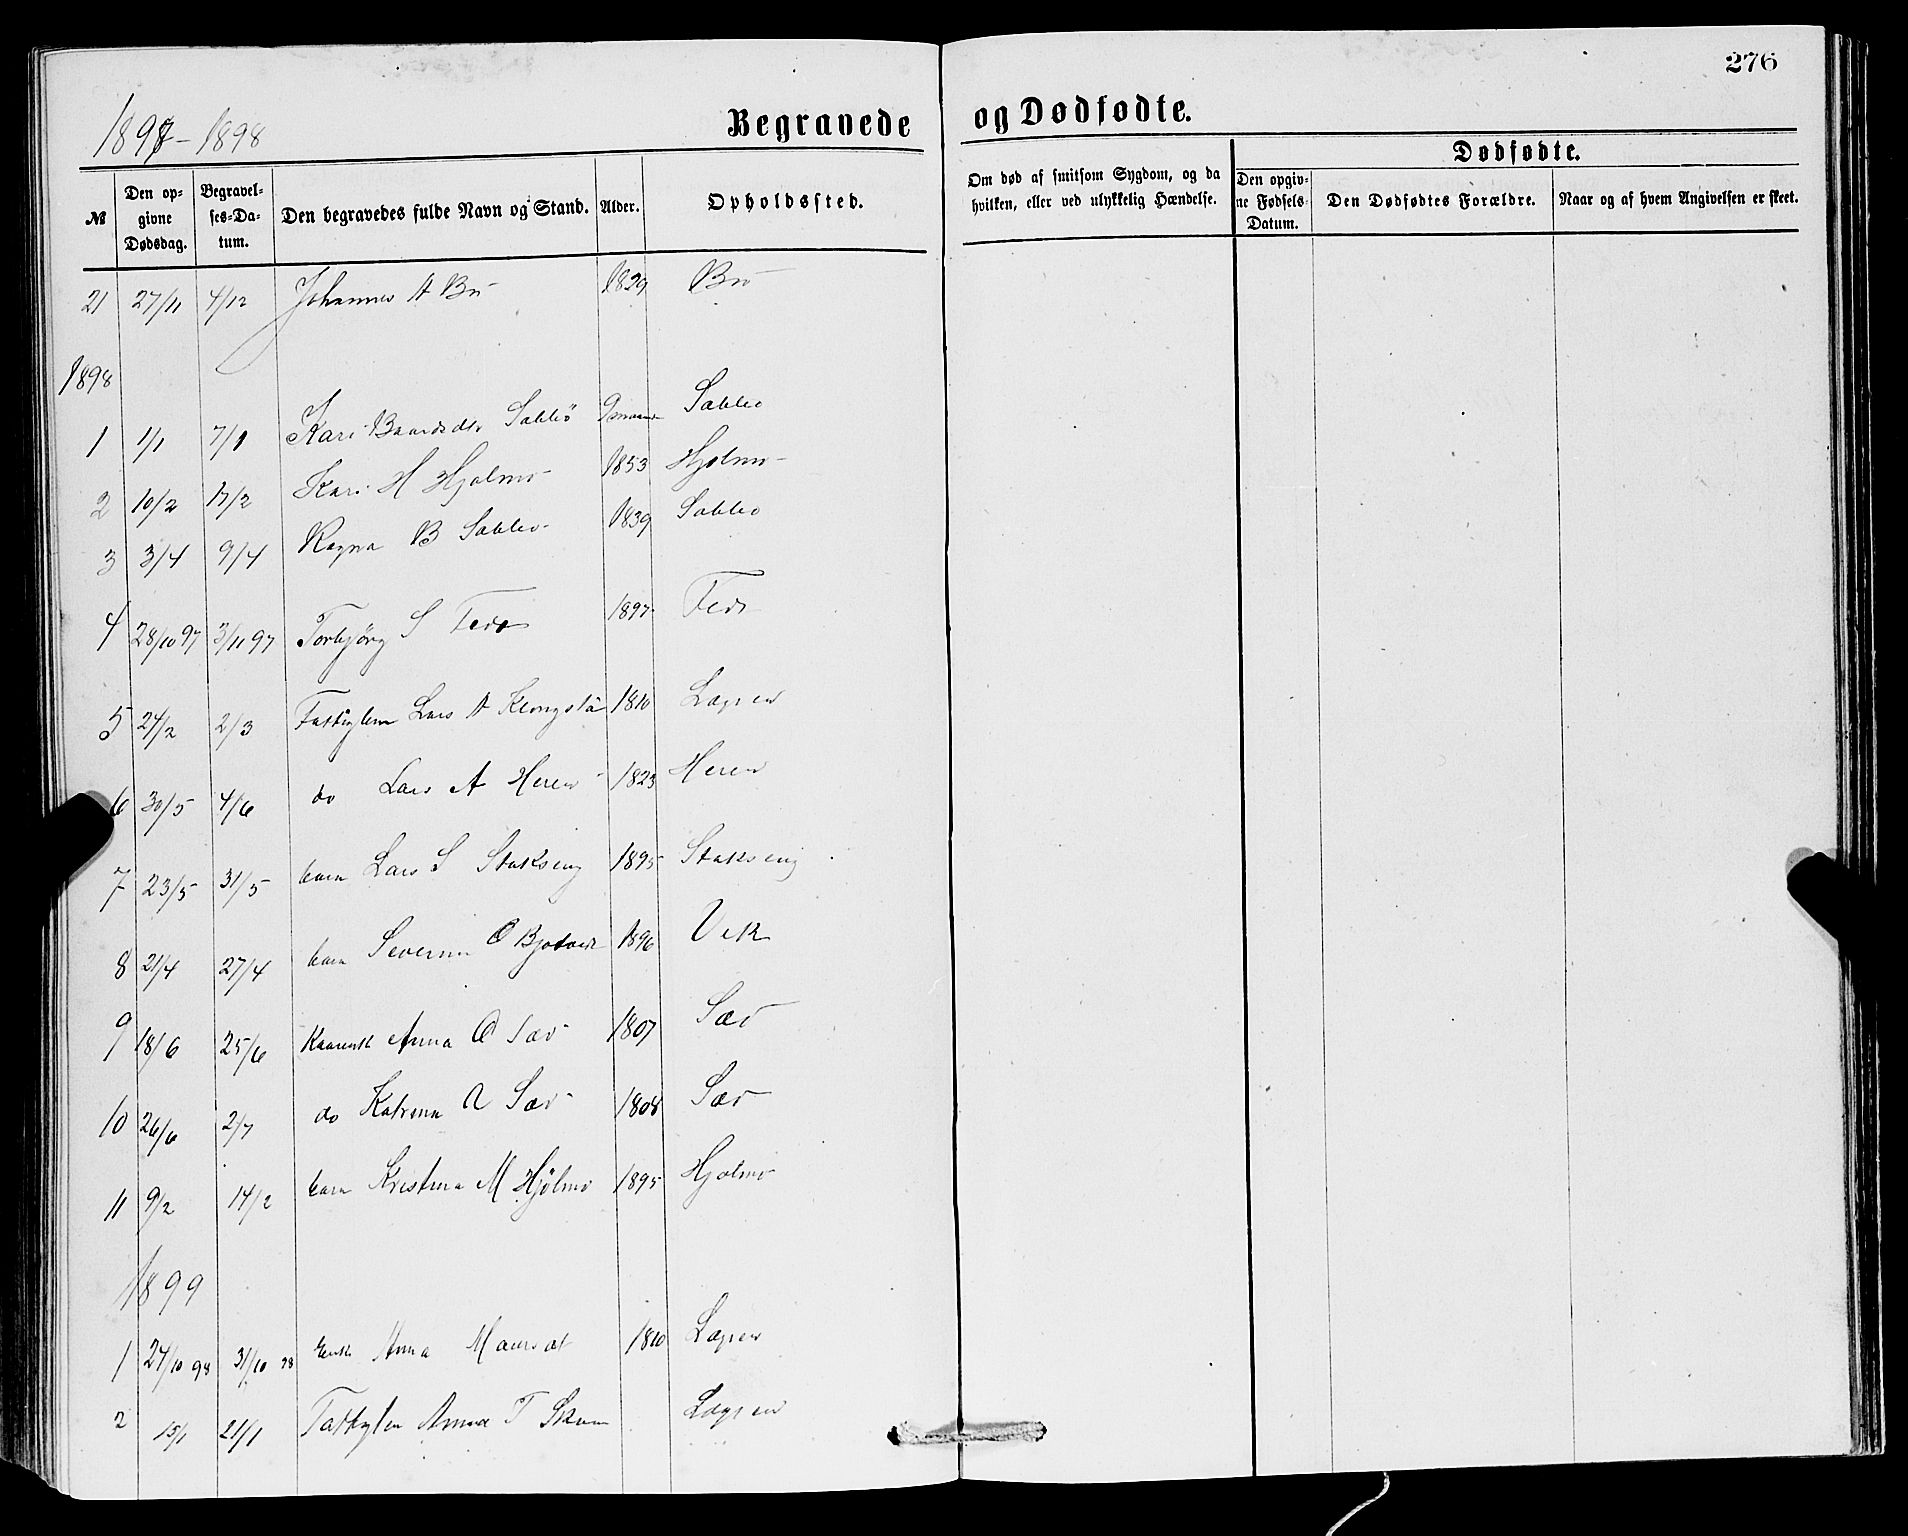 276
1897-1898
Begravede og Dødfødte.
№ | Den opgivne Dødsdag. | Begravelses-Datum. | Den begravedes fulde Navn og Stand. | Alder. | Opholdssted. | Om død af smitsom Sygdom, og da hvilken, eller ved ulykkelig Hændelse. | Dødfødte. Den opgivne Fødsels-Datum. | Den Dødfødtes Forældre. | Naar og af hvem Angivelsen er skeet.
21 27/11 4/12 Johannes A Bu 1829 Bu
1898
1 1/1 7/1 Kari Baardsdtr Sæbbø 9 maaned Sæbbø
2 10/2 17/2 Kari H Hjølmo 1853 Hjølmo
3 3/4 9/4 Ragna B Sæbbø 1839 Sæbbø
4 28/10 97 3/11 97 Torbjørg S Feds 1897 Feds
5 24/2 2/3 Fattiglem Lars A 1810 Lægien
6 30/5 4/6 do Lars A Herein 1823 Herein
7 23/5 31/5 barn Lars S Stokseng 1895 Stokseng
8 21/4 27/4 barn Severin O 1896 Vik
9 18/6 25/6 Anna O Sæv 1807 Sæv
10 26/6 2/7 do Katrina A Sæv 1808 Sæv
11 9/2 14/2 barn Kristina M Hjölmo 1895 Hjølmo
1899
1 24/10 98 31/10 98 Enke Anna Maursæt 1810 Lægien
2 15/1 21/1 Fattiglem Anna T Lægien